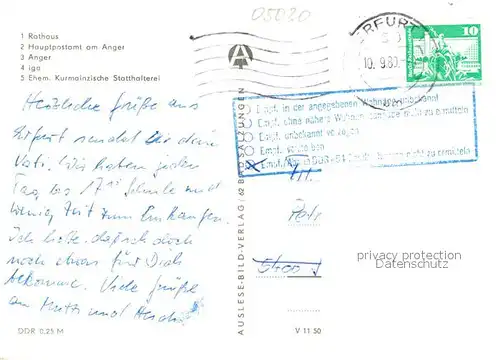 05020
1 Rathaus
2 Hauptpostamt am Anger
3 Anger
4 iga
5 Ehem. Kurmainzische Statthalterei
ERFURT
10.9.80
10
Herzliche Grüße aus
Erfurt sendet dir dein
Vati. Wir haben jeden
Tag bis 17 Schule und
wenig Zeit zum Einkaufen.
Ich hoffe, daß ich doch
noch etwas für Dich
bekomme. Viele Grüße
an Mutti und
Empf. in der angegebenen Wohnung unbekannt
Empf. ohne nähere Wohnungsangabe nicht zu ermitteln
Empf. unbekannt verzogen
Empf. verstorben
nicht zu ermitteln
5400
AUSLESE-BILD-VERLAG / 62 BAD SALZUNGEN
privacy protection
Datenschutz
DDR 0,25 M
V 11 50